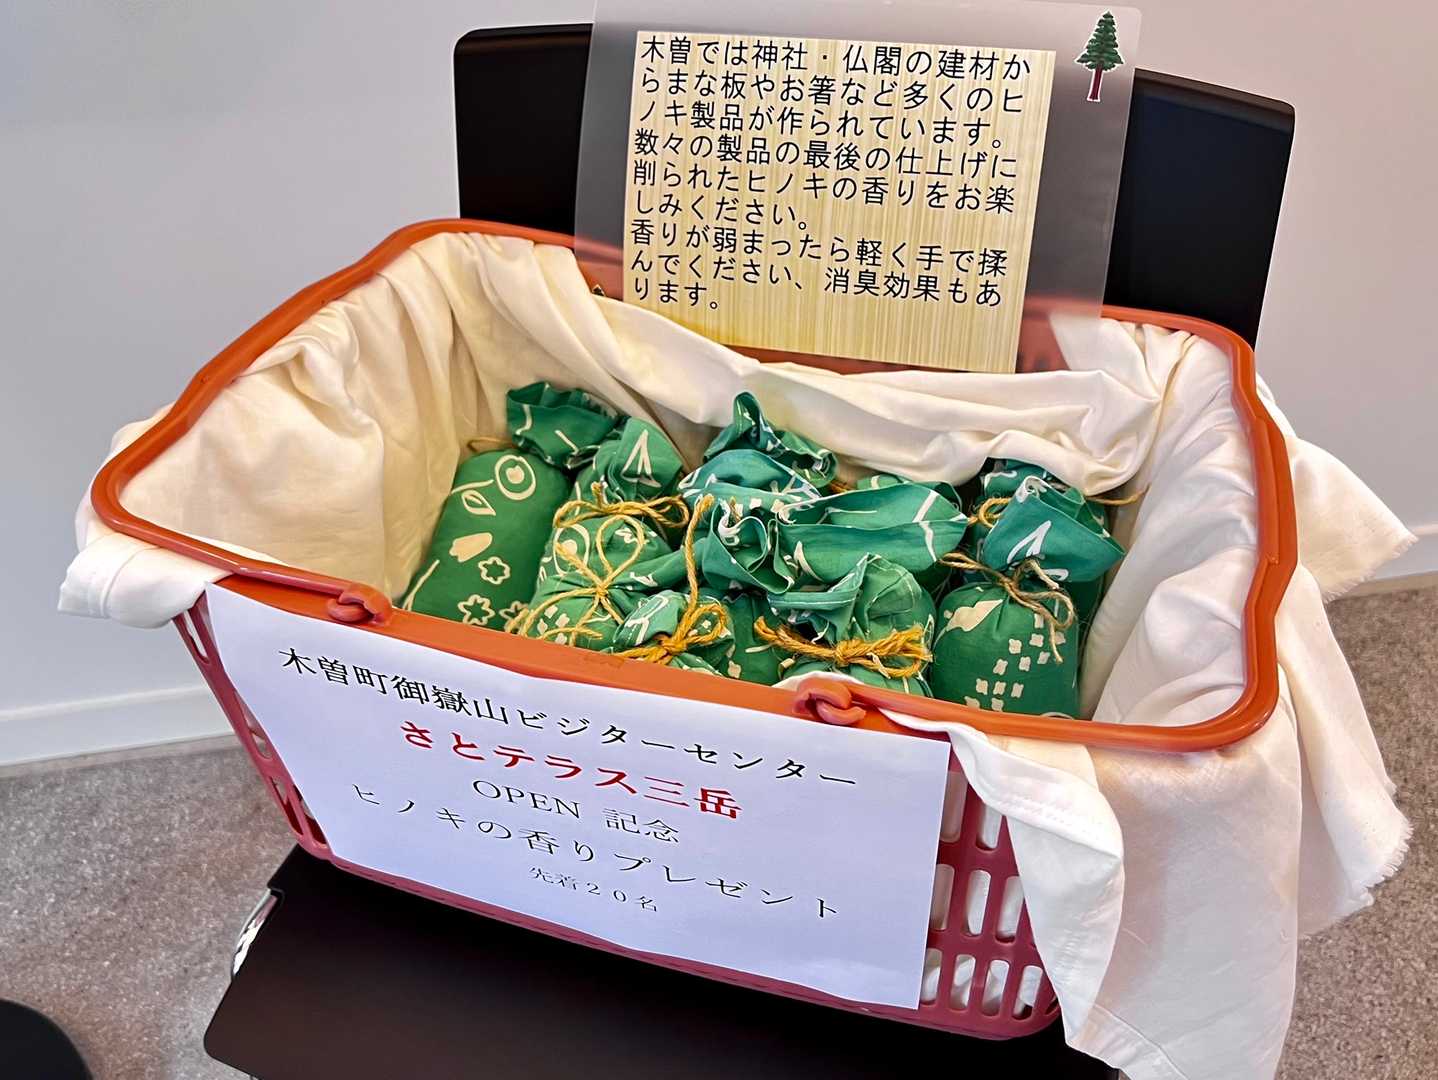 木曽では神社・仏閣の建材か
らまな板やお箸など多くのヒ
ノキ製品が作られています。
数々の製品の最後の仕上げに
削られたヒノキの香りをお楽
しみください。
香りが弱まったら軽く手で揉
んでください、消臭効果もあ
ります。
木曽町御嶽山ビジターセンター
さとテラス三岳
OPEN 記念
ヒノキの香りプレゼント
先着２０名